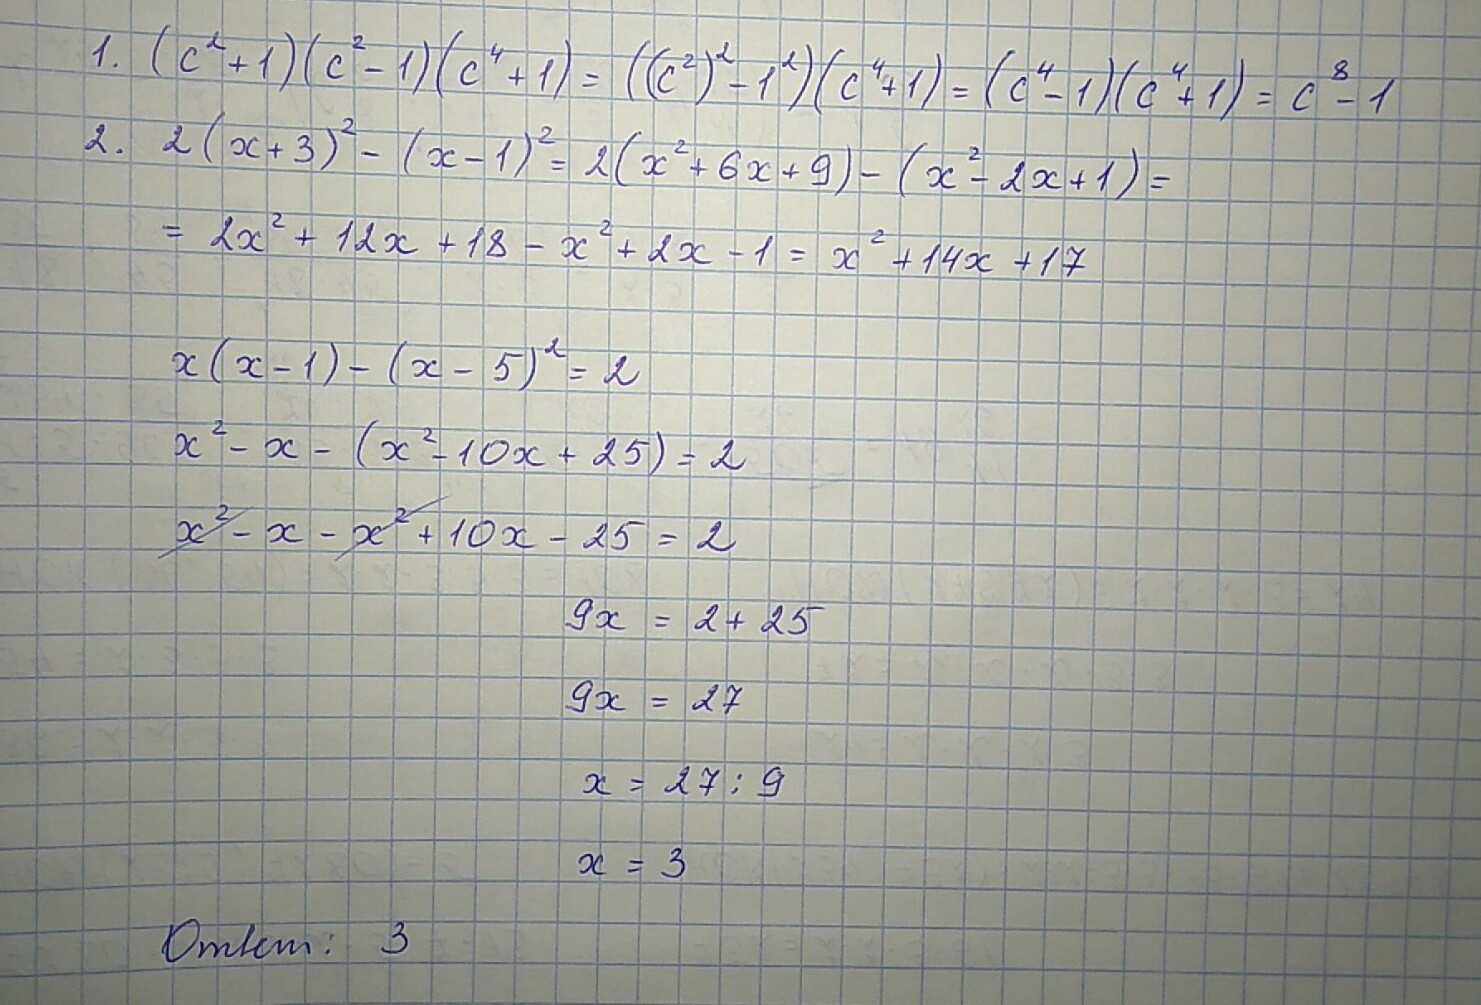 1. (c²+1)(c²-1)(c⁴+1) = ((c²)²-1²)(c⁴+1) = (c⁴-1)(c⁴+1) = c⁸-1
2. 2(x+3)² - (x-1)² = 2(x²+6x+9) - (x²-2x+1) =
= 2x² + 12x + 18 - x² + 2x - 1 = x² + 14x + 17
x(x-1) - (x-5)² = 2
x² - x - (x²-10x+25) = 2
x² - x - x² + 10x - 25 = 2
9x = 2+25
9x = 27
x = 27:9
x = 3
Ответ: 3